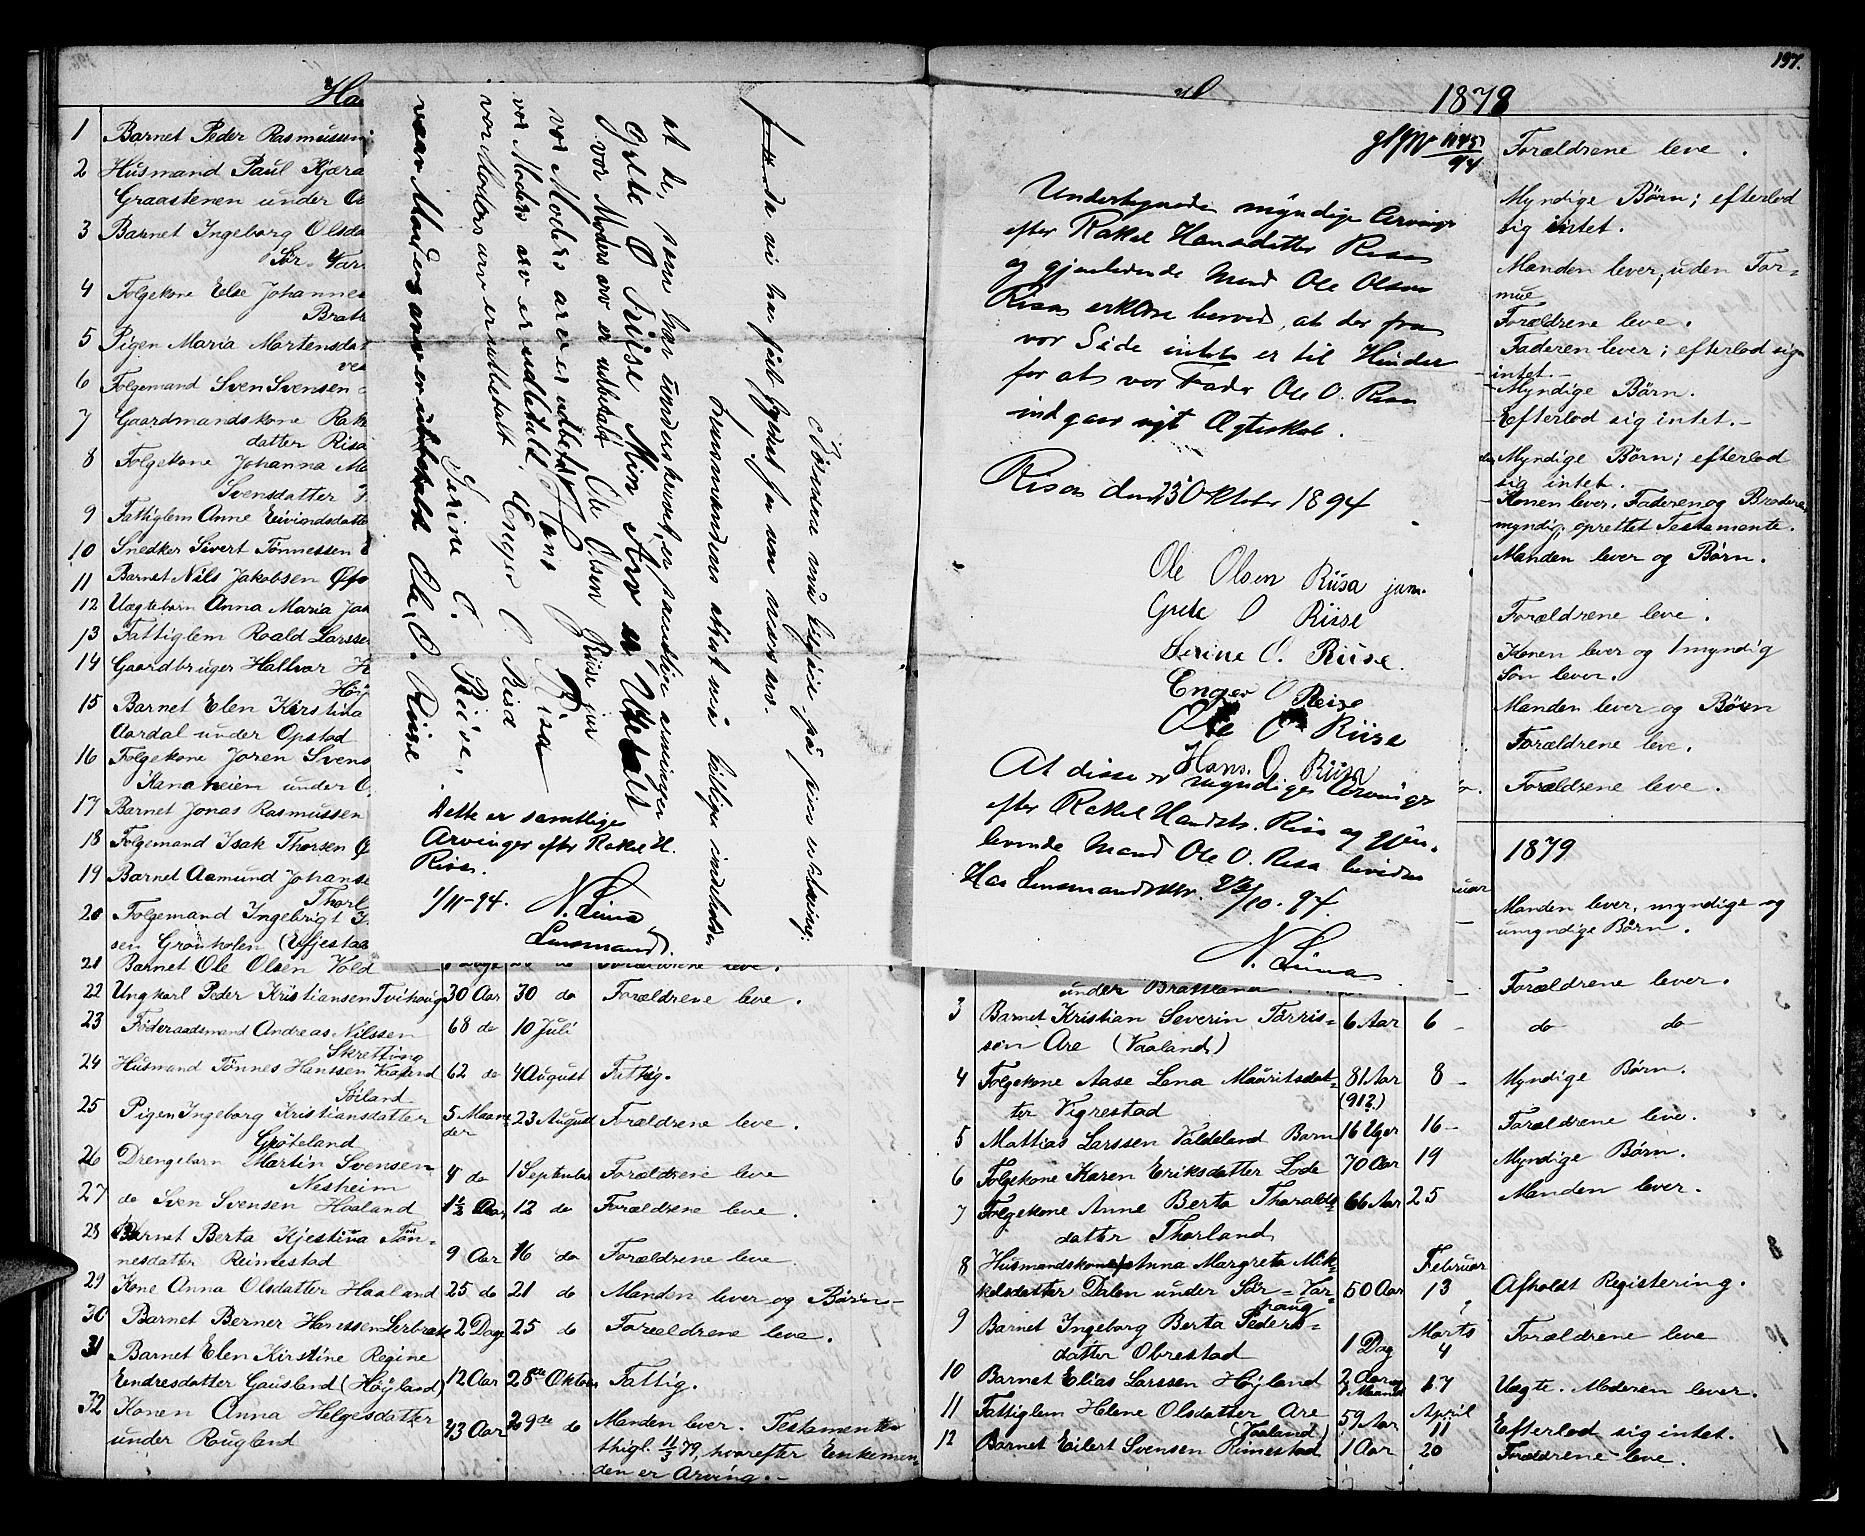 197.
Ha
1 Barnet Peder Rasmussen
2 Husmand Paul Kjæra
Graastenen under O
3 Barnet Ingeborg Olsda
Sør. Var
4 Folgekone Else Johannes
Bratt
5 Pigen Maria Martensdat
ves
6 Folgemand Sven Svensen
7 Gaardmandskone Rak
datter Risa
8 Folgekone Johanna M
Svensdatter
9 Fattiglem Anne Eivindsdatte
10 Snedker Sivert Tønnessen
11 Barnet Nils Jakobsen
12 Uægtebarn Anna Maria Jak
13 Fattiglem Roald Larssen
14 Gaardbruger Hallvor H
Høy
15 Barnet Elen Kirstina
Aardal under Opstad
16 Folgekone Joren Svens
Kanaheien under O
17 Barnet Jonas Rasmussen
18 Folgemand Isak Thorsen
19 Barnet Aamund Johanse
Thorl
20 Folgemand Ingebrigt
sen Grønholen
21 Barnet Ole Olsen Vold Forældrene leve.
22 Ungkarl Peder Kristiansen Tvihaug 30 Aar 30 do Forældrene leve.
23 Føderaadsmand Andreas Nilssen 68 do 10 Juli
Skretting
24 Husmand Tønnes Hanssen 62 do 4 August Fattig.
Søiland
25 Pigen Ingeborg Kristiansdatter 5 Maane 23 August Forældrene leve.
der
Grøteland
26 Drengebarn Martin Svensen 4 do 1 September Forældrene leve
Nesheim
27 do Sven Svensen Haaland 1½ Aar 12 do Forældrene leve.
28 Barnet Berta Kjestina Tøn=
nesdatter Reimestad 9 Aar 16 do Forældrene leve.
29 Kone Anna Olsdatter Haaland 25 do 21 do Manden lever og Børn
30 Barnet Berner Hanssen Lerbræk 2 Dage 25 do Forældrene leve.
31 Barnet Elen Kirstine Regine
Endresdatter Gausland (Høyland) 12 Aar 28de Oktober Fattig.
32 Konen Anna Helgesdatter 43 Aar 29de do Manden lever. Testamente
under Rougland thigl. 11/3 79, hvorefter Enkeman=
den er Arving.
Børnene maa tilføie på sin erklæring:
vi har fået bydet for vor mors arv.
Lensmanden
Gitte O Triise Min Arv er Utebalt
vor Moders arv er udbetalt Ole Olsen Riise jun
vor Moders arv er udbetalt Hans Risa
vor Moders arv er udbetald. Enger O. Risa
vor Moders arv er udbetalt Serine O. Riise.
vaar Moders arv er utbetalt Ole O. Riise
Dette er samtlige
Arvinger efter Rakel H.
Risa.
1/11-94. N. Lima
Lensmand.
1878
1145/94
Undertegnede myndige Arvinge
efter Rakel Hansdatter Risa
og gjenlevende Mand Ole Olsen
Risa erklære herved, at der fra
vor Side intet er til Hinder
for at vor Fader Ole O. Risa
indgaar nyt Ægteskab.
Risa den 23 Oktober 1894
Ole Olsen Riisa jun.
Gitte O Riise
Serine O. Riise.
Enger O Reise
Ole O Riise
Hans. O. Riisa
At disse er myndige Arvinge
efter Rakel Hansdtr. Risa og gjen-
levende Mand Ole O. Risa bevidnes
Haa Lensmandsktr. 23/10. 94.
N. Lima
Forældrene leve.
Myndige Børn; efterlod
sig intet.
Manden lever, uden For=
mue
Forældrene leve.
Faderen lever; efterlod sig
intet.-
Myndige Børn.
Efterlod sig intet.-
Myndige Børn; efterlod
sig intet.
Konen lever, Faderen og Brødre
myndig, oprettet Testamente.
Manden lever og Børn.
Forældrene leve.
Konen lever og 1 myndig
Søn lever.
Manden lever og Børn
Forældrene leve.
Forældrene leve.
1879
Manden lever, myndige og
umyndige Børn.
under Brattland. Forældrene lever.
3 Barnet Kristian Severin Tørris= 6 Aar 6 - do do
sen Are (Vaaland)
4 Folgekone Aase Lena Mauritsdat= 81 Aar 8 - Myndige Børn.
ter Vigrestad (91?)
5 Mattias Larssen Valdeland Barn 16 Uger 16 - Forældrene leve.
6 Folgekone Karen Eriksdatter Lode 70 Aar 19 Myndige Børn.
7 Folgekone Anne Berta Tharalds= 66 Aar 25 Manden lever.
datter Thorland
8 Husmandskone Anna Margreta Mik= Februar
kelsdatter Dalen under Sør=Var= 50 Aar 13 Afholdt Registering.
haug
9 Barnet Ingeborg Berta Peders= Marts
datter Obrestad 1 Dag 4 Forældrene leve
10 Barnet Elias Larssen Høyland 2 Aar og 17 Uægte. Moderen lever.
11 Fattiglem Helene Olsdatter Are 59 Aar April 11 Efterlod sig intet.
(Vaaland)
12 Barnet Eilert Svensen Rimestad 1 Aar 20 Forældrene leve.